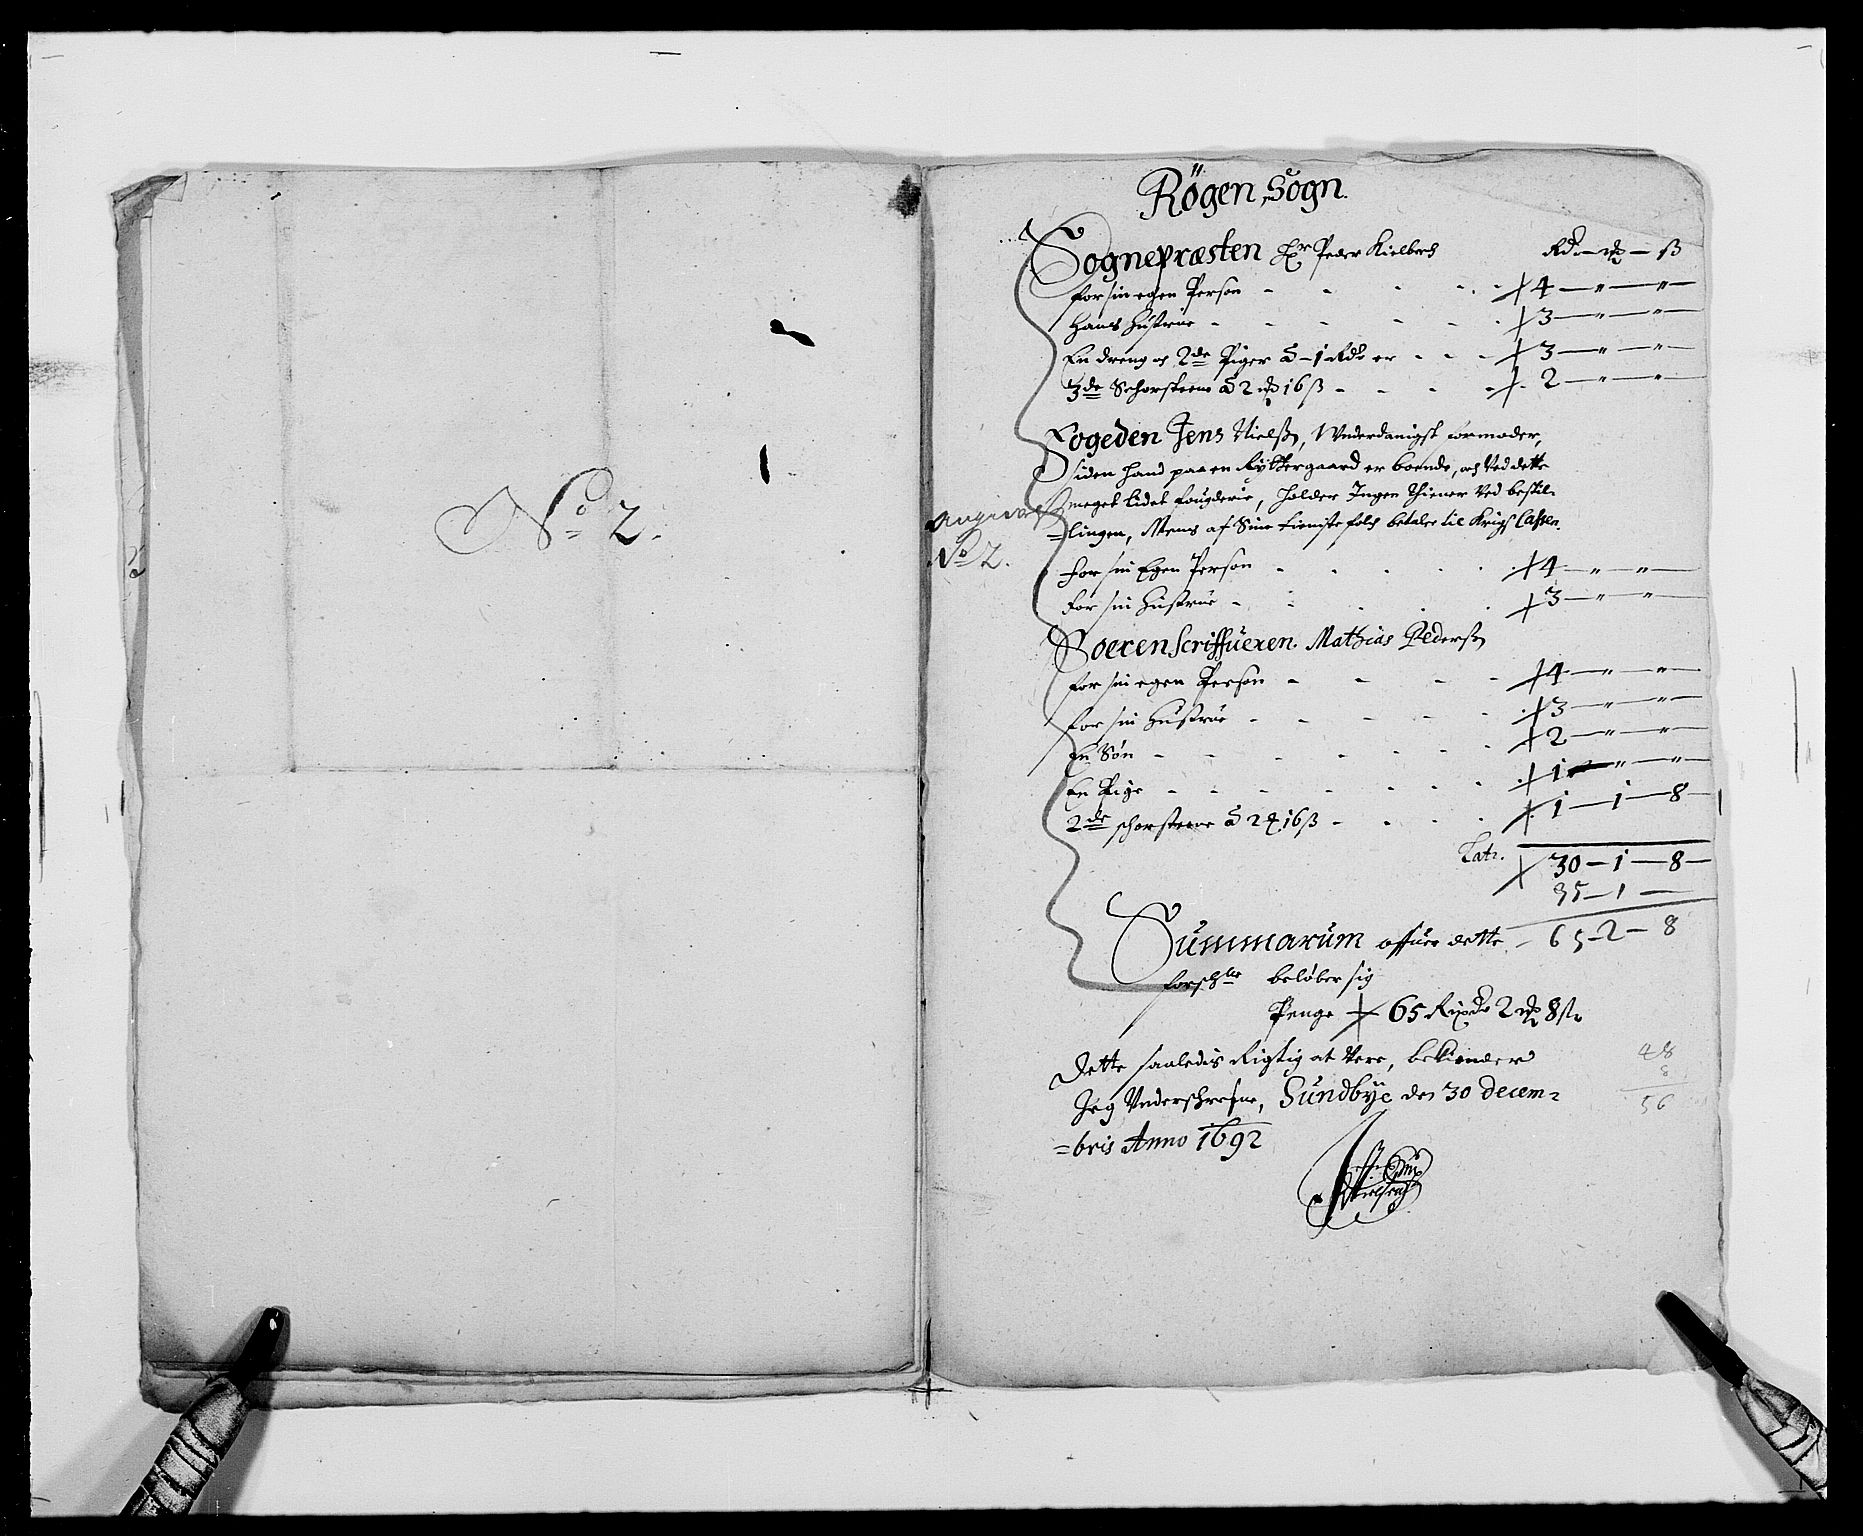 No 2.
Rögen Sogn.
Sognepræsten Hr Peder Kielberh Rd. — mk — ß
for sin egen Person - - - - 4 — " — "
Hans Hustrue - - - - 3 — " — "
En dreng och 2de Piger á 1 Rdr er - - - 3 — " — "
3de Schorsteene á 2 mk 16 ß - - - 2 — " — "
Fogeden Jens Nielsß, Wnderdanigst formoder,
siden hand paa en Rytter gaard er boende, och ved dette
meget lidet fougderie, holder Ingen Thiener ved bestil-
=lingen, Mens af Sine tieniste folch betaler til Krigs Cassen.
Angivelse
No 2.
for sin Egen Person - - - 4 — " — "
for sin Hustrue - - - 3 — " — "
Sorenscriffueren Mathias Pederß
for sin egen Person - - - 4 — " — "
for sin Hustrue - - - 3 — " — "
En Søn - - - 2 — " — "
En Pige - - - 1 — " — "
2de schorsteene á 2 mk 16 ß - - - 1 — 1 — 8
Latr. 30 — 1 — 8
35 — 1 —
Summarum offuer dette 65 — 2 — 8
forschr beløber sig
Penge 65 Rixdr 2 mk 8 ß
Dette saaledis Rigtig at Vere, bekiender
Jeg Underschrefne, Sundbye den 30 decem=
=bris Anno 1692
48
8
56
Nielsen